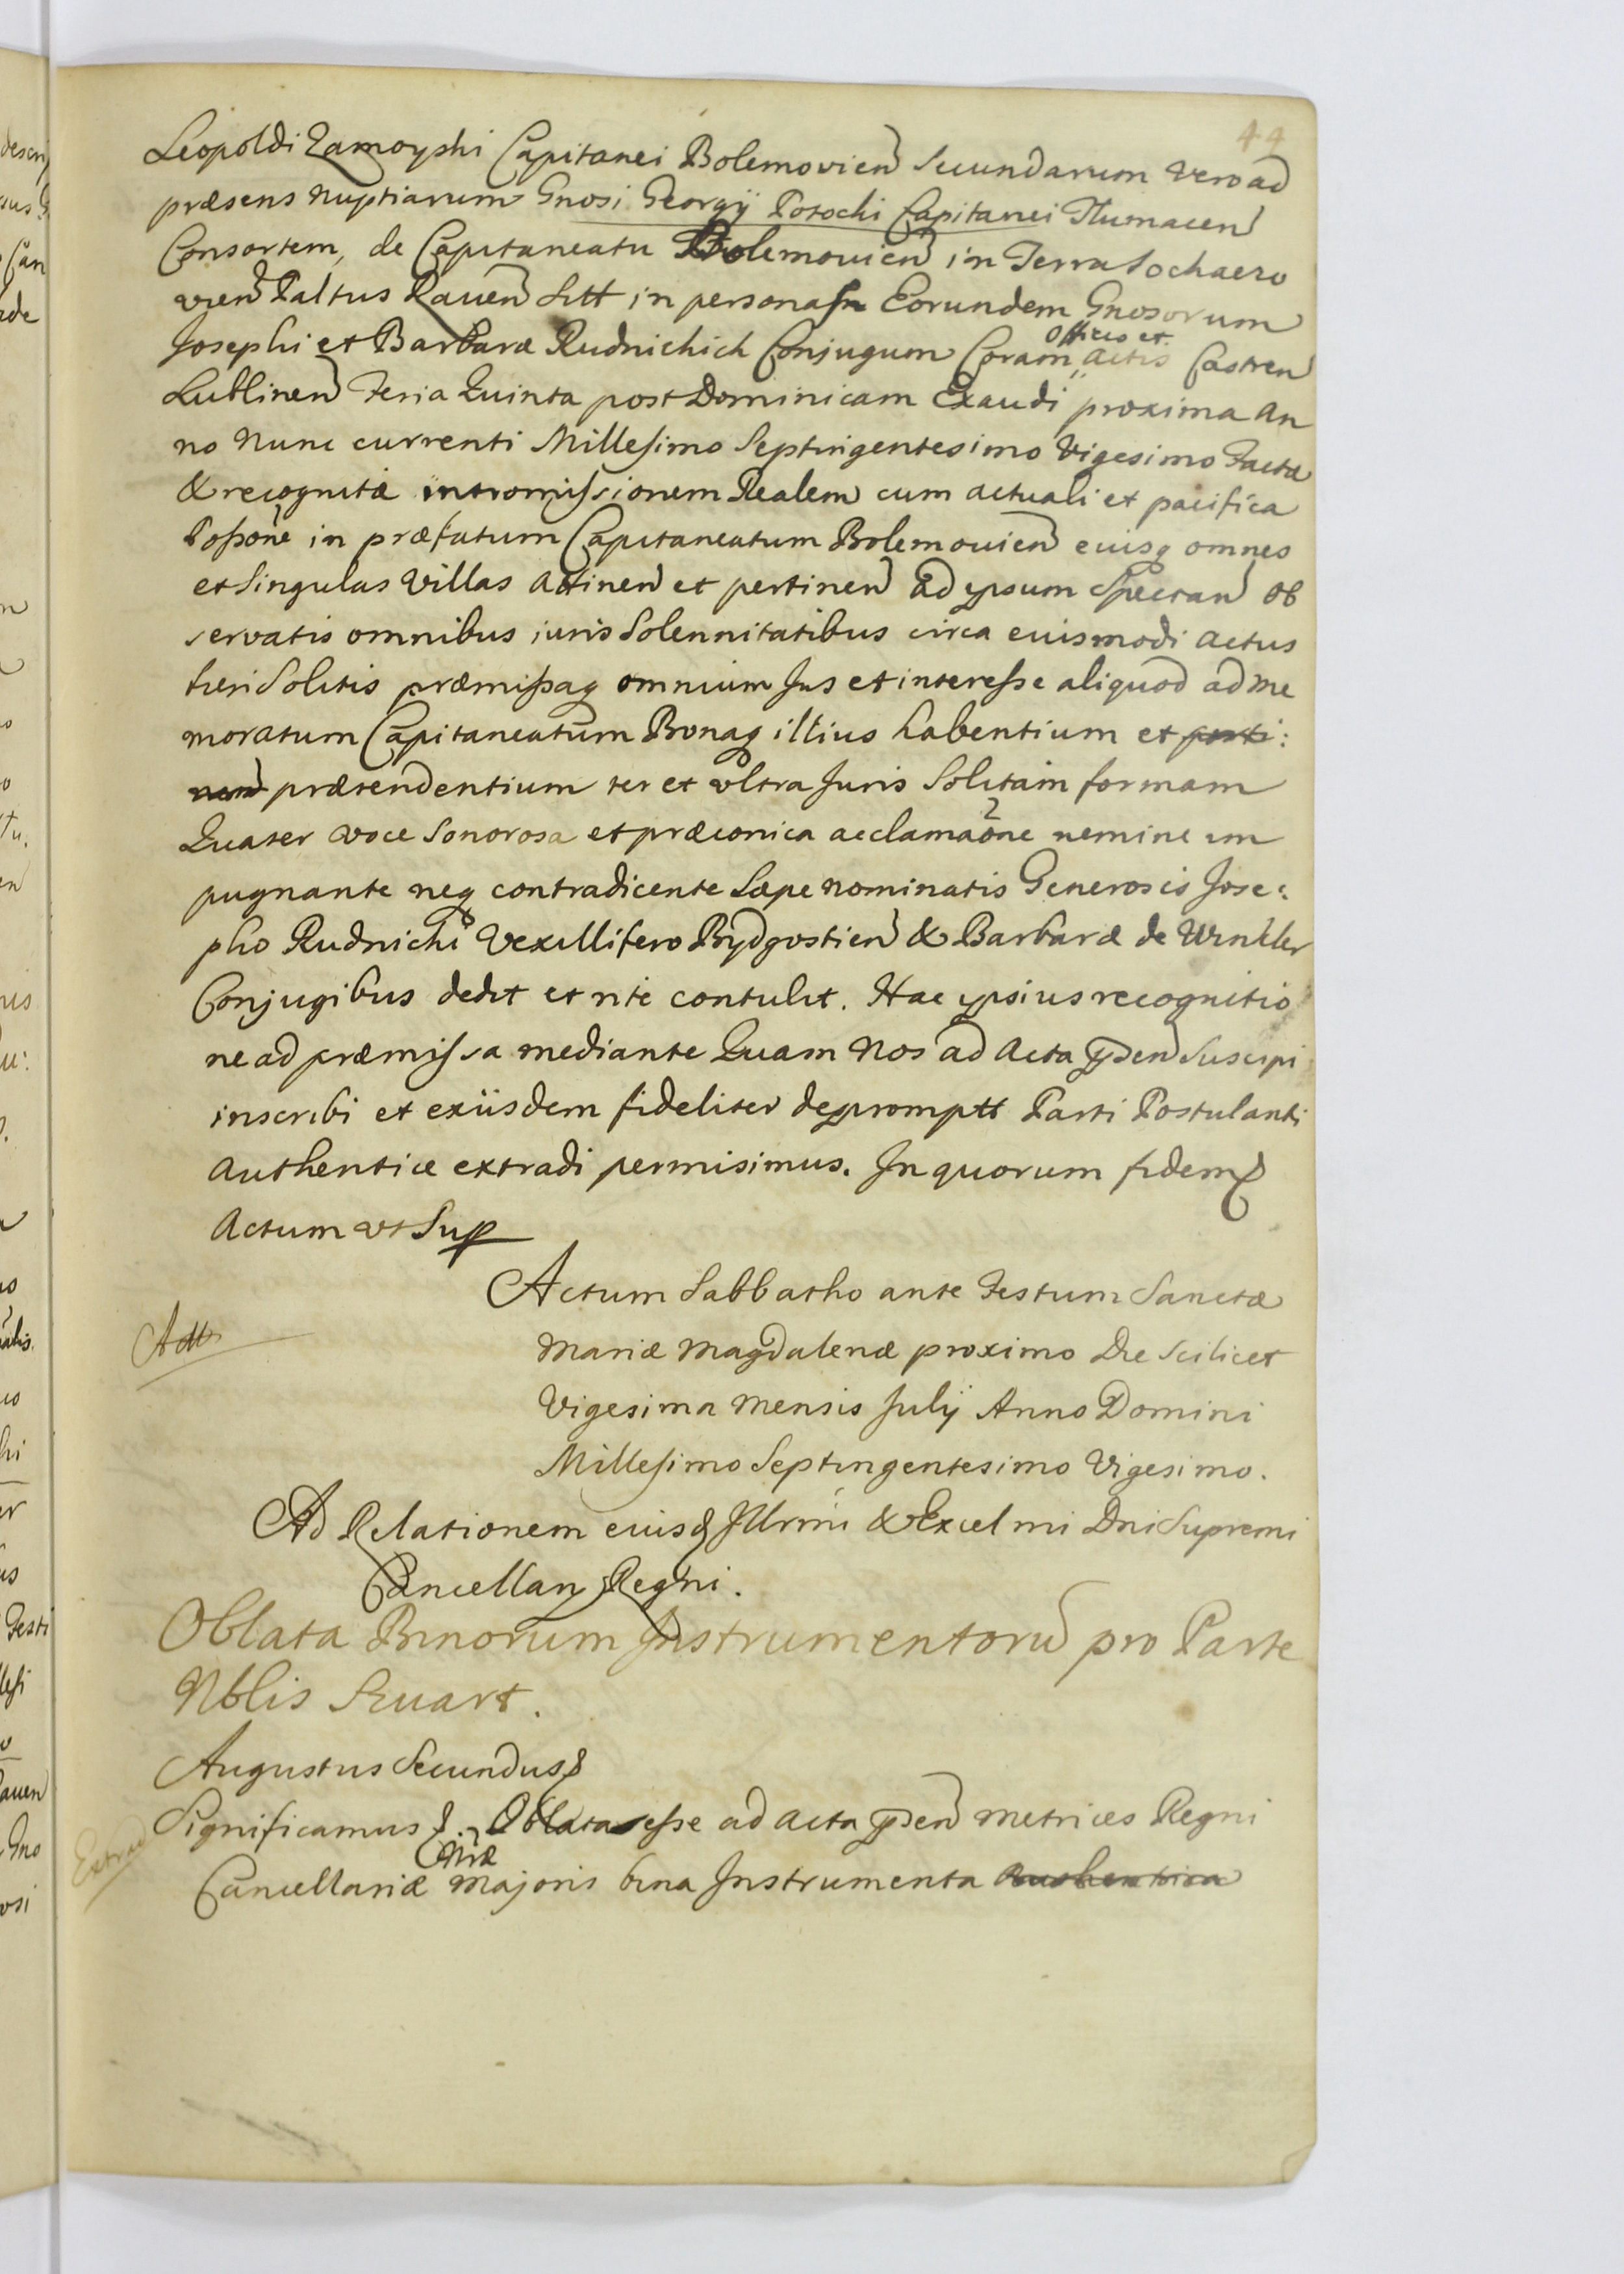 44
Leopoldi Zamoyski Capitanei Bolemovien Secundarum vero ad
præsens Nuptiarum Gnosi Georgÿ Potocki Capitanei Tlumacen
Consortem, de Capitaneatu Bolemovien in Terra Sochaczo
vien Paltus Raven Sitt in personam Eorundem Gnosorum
Josephi et Barbaræ Rudnickich Conjugum Coram Officio et Actis Castren
Lublinen Feria Quinta post Dominicam Exaudi proxima An
no Nunc currenti Millesimo Septingentesimo Vigesimo Facta
& recognita intromissionem Realem cum actuali et pacifica
Possone in præfatum Capitaneatum Bolemovien eiusq omnes
et Singulas Villas Attinen et pertinen ad ipsum Spectan Ob
servatis omnibus iuris Solennitatibus circa euismodi actus
fieri Solitis præmissaq omnium Jus et interesse aliquod ad Me
moratum Capitaneatum Bonaq illius habentium et perti:
nen prætendentium ter et ultra Juris Solitam formam
Quater voce Sonorosa et præconica acclamaone nemine im
pugnante neq contradicente Sæpe Nominatis Generosis Jose:
pho Rudnicki Vexillifero Bydgostien & Barbaræ de Winkler
Conjugibus dedit et rite contulit. Hac ipsius recognitio
ne ad præmissa mediante Quam Nos ad Acta pden Suscipi
inscribi et exiisdem fideliter depromptt Parti Postulanti
Authentice extradi permisimus. In quorum fidem
Actum ut Sup
Actum Sabbatho ante Festum Sanctæ
Mariæ Magdalenæ proximo Die Scilicet
Vigesima Mensis Julÿ Anno Domini
Millesimo Septingentesimo Vigesimo.
Ad Relationem eiusd Illrmi & Excelmi Dni Supremi
Cancellarij Regni.
Oblata Binorum Instrumentoru pro Parte
Nblis Stuart.
Augustus Secundus
Extrad
Significamus Oblata esse ad Acta pden Metrices Regni
Cancellariæ Nræ Majoris bina Instrumenta Authentica